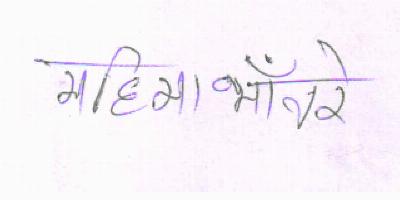 महिमा भाँवरे